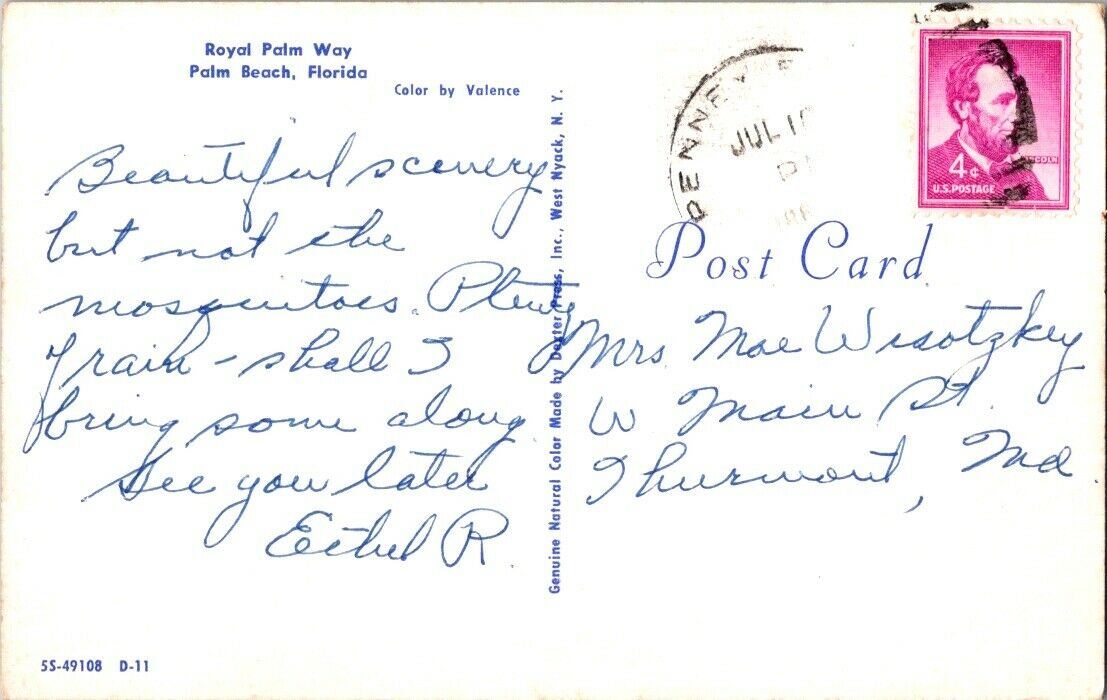 Royal Palm Way
Palm Beach, Florida
Color by Valence
Beautiful scenery
but not the
mosquitoes. Plenty
of rain - shall I
bring some along
See you later
Ethel R.
Genuine Natural Color Made by Dexter Press, Inc., West Nyack, N. Y.
PENNEY
JUL 1
P
LINCOLN
4¢
U.S. POSTAGE
Post Card
Mrs Mae Wisotzkey
W Main St.
Thurmont, Md
5S-49108 D-11